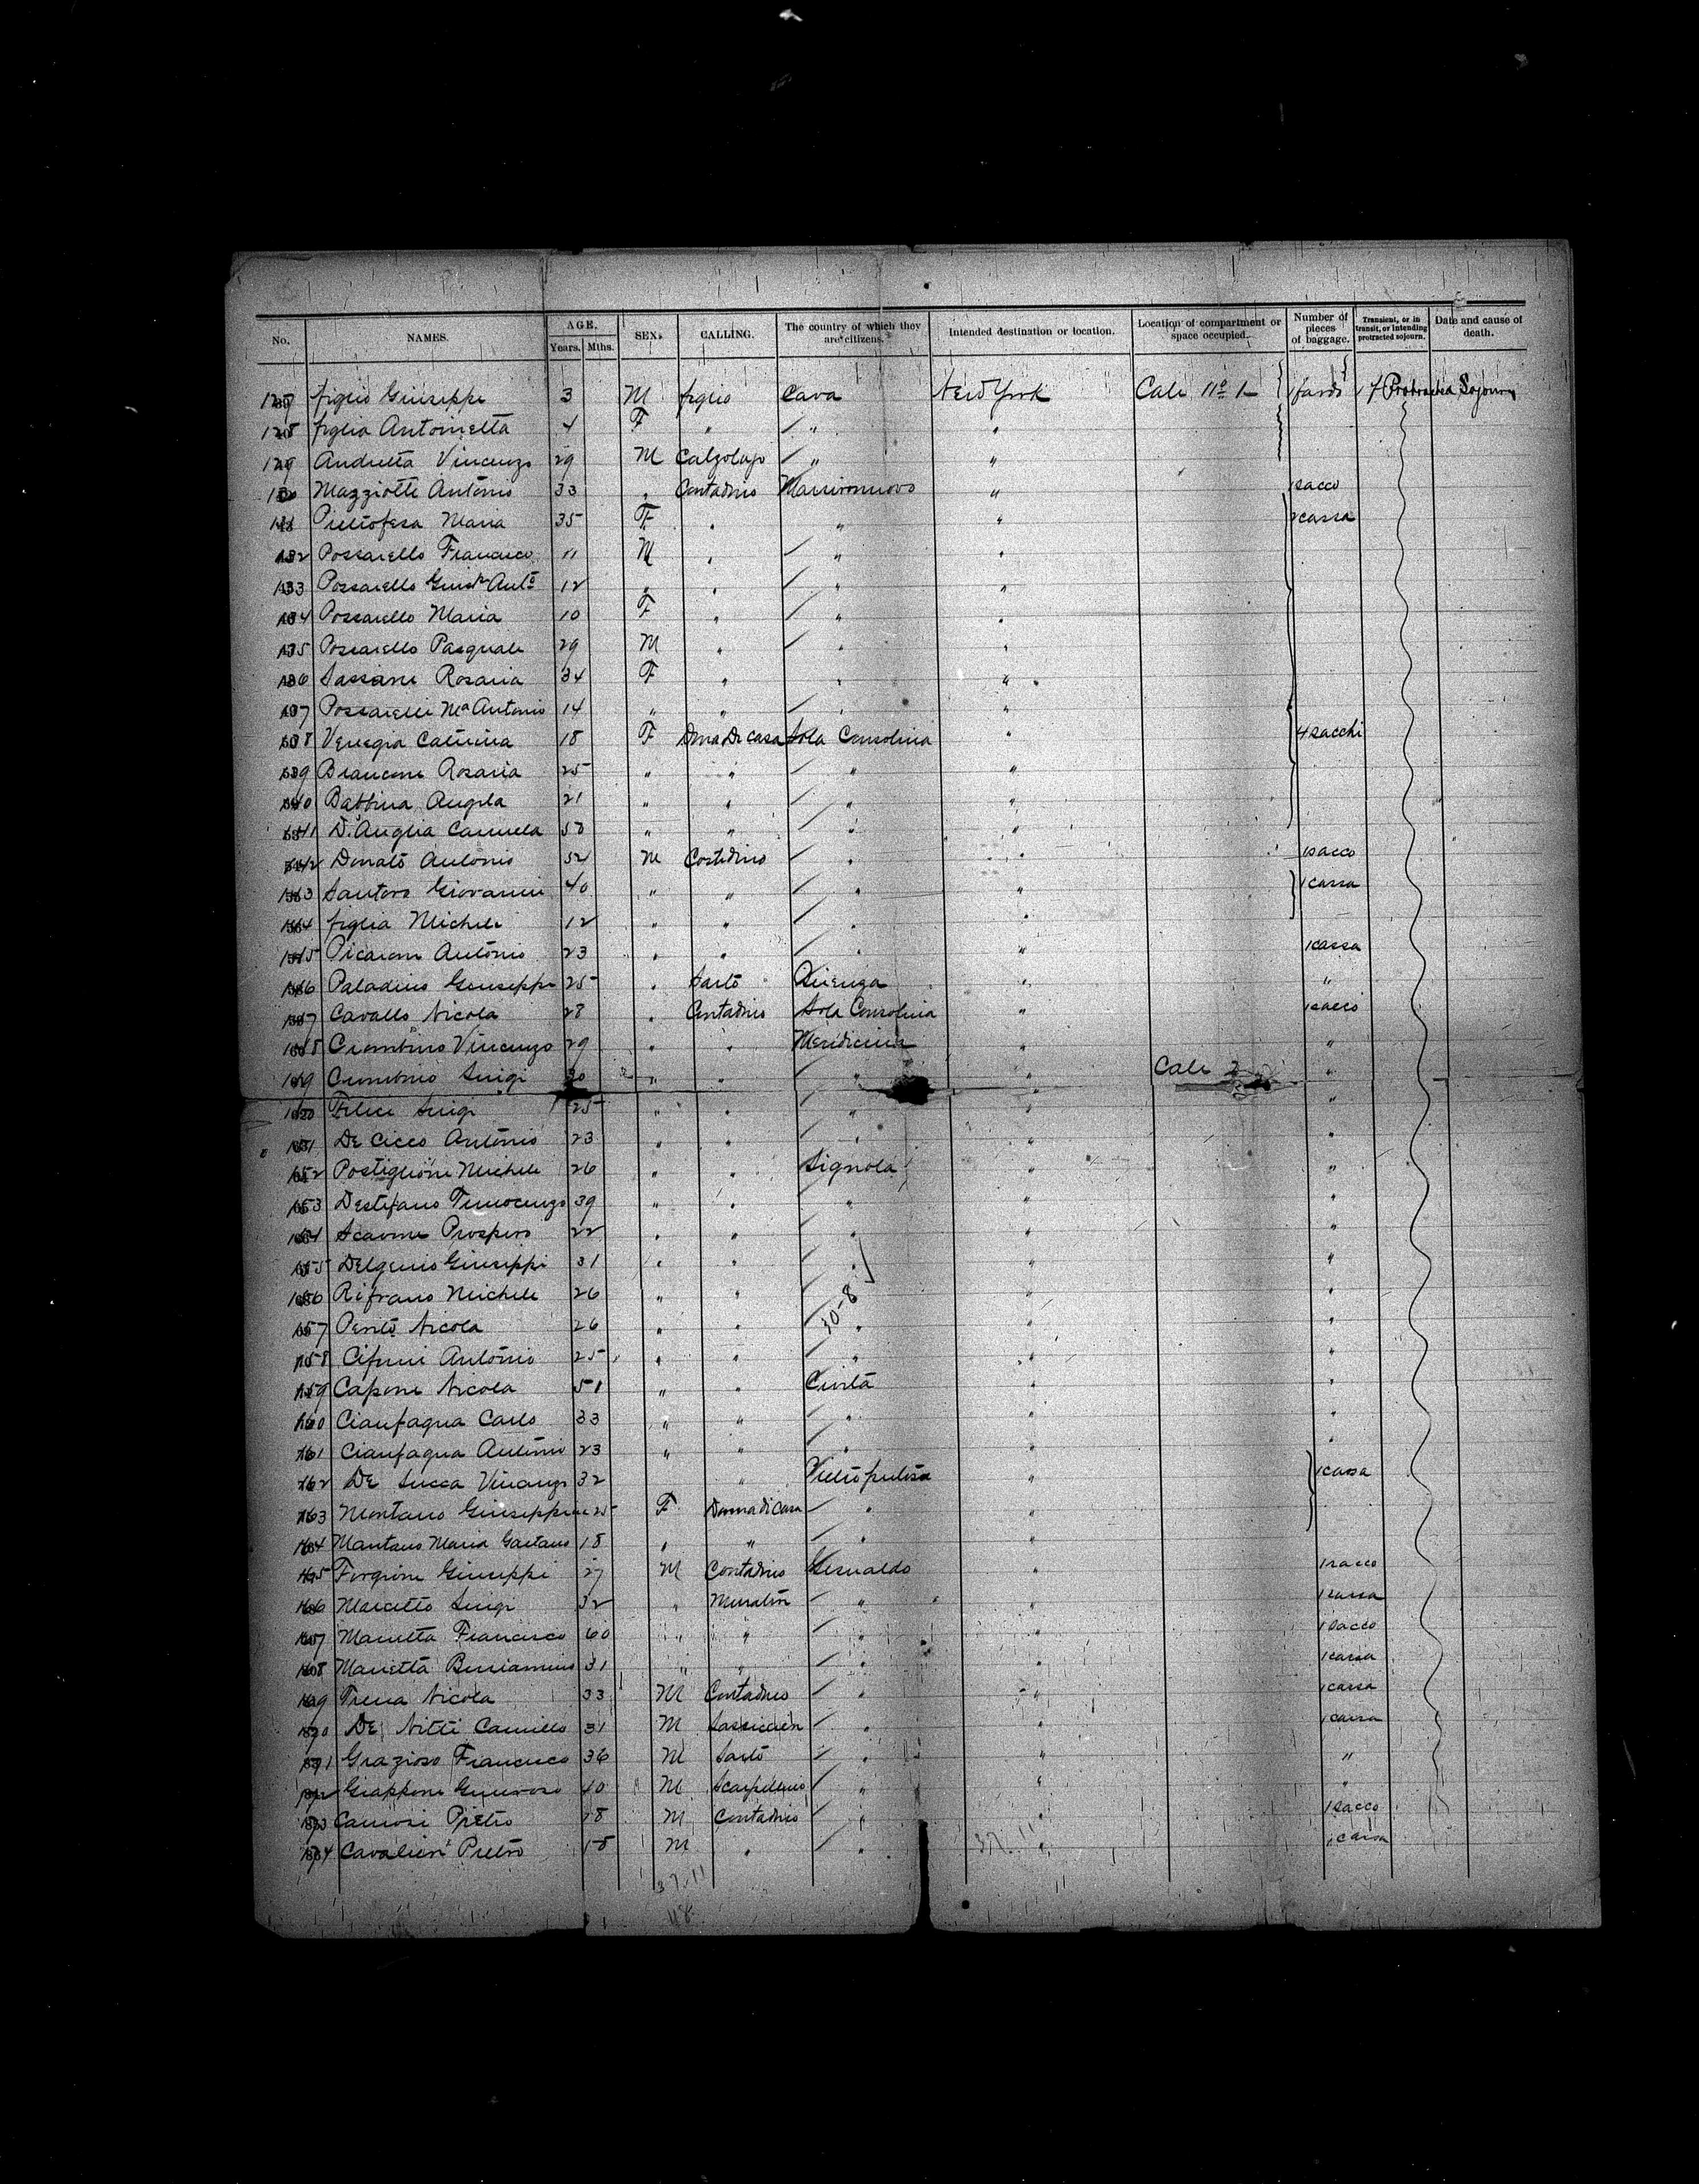 No. NAMES. AGE. Years. Mths. SEX. CALLING. The country of which they are citizens. Intended destination or location. Location of compartment or space occupied. Number of pieces of baggage. Transient, or in transit, or intending protracted sojourn. Date and cause of death.
figlio Giuseppe 3 M figlio Cava New York Cale No 1 1 fardo Protracted Sojourn
128 figlia Antonietta 4 F " " "
129 Andretta Vincenzo 29 M Calzolajo " "
130 Mazziotte Antonio 33 " Contadino " 1 sacco
Pietrofesa Maria 35 F " " " 2 cassa
132 Possarello Francesco 11 M " " "
133 Possarello Anto 12 " " " "
134 Possarello Maria 10 F " " "
135 Possarello Pasquale 29 M " " "
136 Sassane Rosaria 34 F " " "
137 Possarelli Ma Antonio 14 " " " "
138 Caterina 18 F Dona Di casa Sola Consolina " 4 sacchi
139 Brancone Rosaria 25 " " " "
140 Babbina Angela 21 " " " "
141 D'Anglia Carmela 50 " " " "
142 Donato Antonio 52 M Contadino " " 1 sacco
143 Santoro Giovanni 40 " " " " 1 cassa
144 figlia Michele 12 " " " "
145 Picarone Antonio 23 " " " " 1 cassa
146 Paladino Giuseppe 25 " Sarto " "
147 Cavallo Nicola 28 " Contadino Sola Consolina " 1 sacco
148 Ciombino Vincenzo 29 " " " "
149 Luigi 30 " " " " Cale 2 "
150 Felice Luigi 25 " " " " "
151 De Cicco Antonio 23 " " " " "
152 Postiglione Michele 26 " " Signola " "
153 Destefano 39 " " " " "
154 Scavone Prospero 22 " " " " "
155 Giuseppe 31 " " " " "
156 Rifrano Michele 26 " " " "
157 Pento Nicola 26 " " 30-8 " " "
158 Cifuni Antonio 25 " " " " "
159 Capone Nicola 51 " " Civita " "
160 Cianfagna Carlo 33 " " " " "
161 Cianfagna Antonio 23 " " " " "
162 De Lucca Vincenzo 32 " " 1 cassa
163 Montano Giuseppina 25 F Donna di casa " "
164 Mantano Maria Gaetano 18 " " " "
165 Forgione Giuseppe 27 M Contadino Gesualdo " 1 sacco
166 Luigi 32 " Muratore " " 1 cassa
167 Francesco 60 " " " " 1 sacco
168 Marietta Beniamino 31 " " " " 1 cassa
169 Nicola 33 M Contadino " " 1 cassa
170 De Nitti Camillo 31 M " " 1 cassa
171 Grazioso Francesco 36 M Sarto " " "
172 Grappone Generoso 40 M Scarpellino " " "
173 Camosi Pietro 18 M Contadino " " 1 sacco
174 Cavalieri Pietro 18 M " " " 1 cassa
37-11